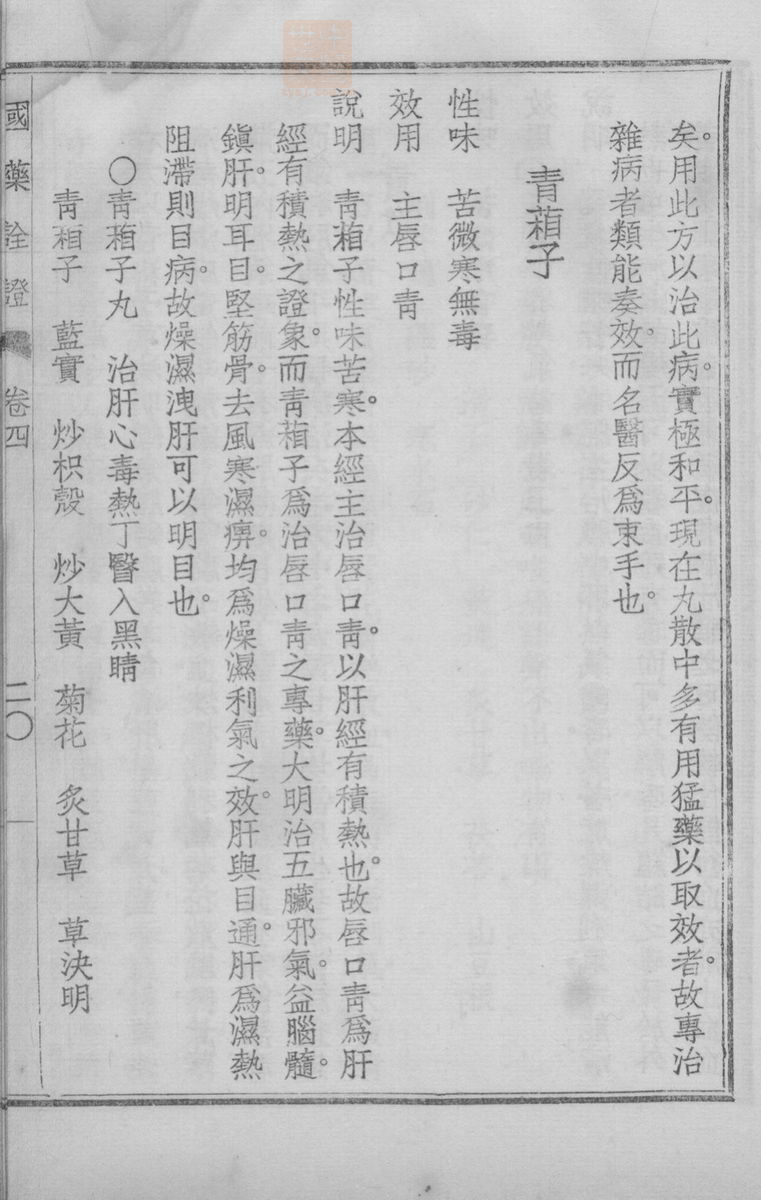 矣。用此方以治此病。實極和平。現在丸散中多有用猛藥以取效者。故專治
雜病者類能奏效。而名醫反爲束手也。
青葙子
性味　苦微寒無毒
效用　主唇口青
說明　青葙子性味苦寒。本經主治唇口青。以肝經有積熱也。故唇口青爲肝
經有積熱之證象。而青葙子爲治唇口青之專藥。大明治五臟邪氣。益腦髓。
鎭肝。明耳目。堅筋骨。去風寒濕痹。均爲燥濕利氣之效。肝與目通。肝爲濕熱
阻滯則目病。故燥濕洩肝可以明目也。
〇青葙子丸　治肝心毒熱丁瞖入黑睛
青葙子　藍實　炒枳殼　炒大黃　菊花　炙甘草　草決明
國藥詮證　卷四　二〇